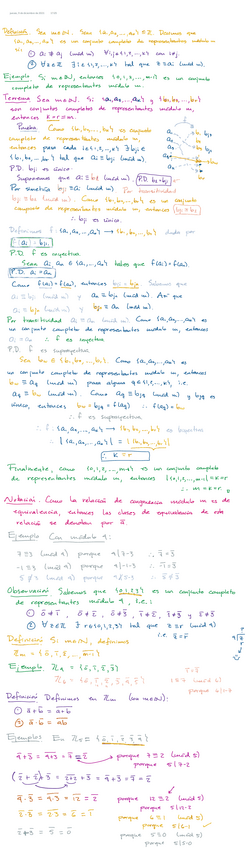 Definición. Sea m∈N. Sean {a₁,a₂,...,aₖ} ⊆ Z. Diremos que
{a₁,a₂,...,aₖ} es un conjunto completo de representantes módulo m
si:
① aᵢ ≢ aⱼ (mod m) ∀i,j∈{1,2,...,k} con i≠j.
② ∀z∈Z ∃i∈{1,2,...,k} tal que z≡aᵢ (mod m).
Ejemplo. Si m∈N, entonces {0,1,2,...,m-1} es un conjunto
completo de representantes módulo m.
Teorema. Sea m∈N. Si {a₁,a₂,...,aₖ} y {b₁,b₂,...,bᵣ}
son conjuntos completos de representantes módulo m,
entonces k=r=m.
Prueba. Como {b₁,b₂,...,bᵣ} es conjunto
completo de representantes módulo m,
entonces para cada i∈{1,2,...,k} ∃ bⱼᵢ∈
{b₁,b₂,...,bᵣ} tal que aᵢ≡bⱼᵢ (mod m).
P.D. bⱼᵢ es único.
Supongamos que aᵢ≡bₗ (mod m). P.D. bⱼᵢ=bₗ
Por simetría bⱼᵢ≡aᵢ (mod m). Por transitividad
bⱼᵢ≡bₗ (mod m). Como {b₁,b₂,...,bᵣ} es un conjunto
completo de representantes módulo m, entonces bⱼᵢ=bₗ.
∴ bⱼᵢ es único.
Definimos f:{a₁,a₂,...,aₖ} → {b₁,b₂,...,bᵣ} dada por
f(aᵢ)=bⱼᵢ.
P.D. f es inyectiva.
Sean aᵢ, aₙ ∈ {a₁,a₂,...,aₖ} tales que f(aᵢ)=f(aₙ).
P.D. aᵢ=aₙ
Como f(aᵢ)=f(aₙ), entonces bⱼᵢ=bⱼₙ. Sabemos que
aᵢ≡bⱼᵢ (mod m) y aₙ≡bⱼₙ (mod m). Así que
aᵢ≡bⱼₙ (mod m) y bⱼₙ≡aₙ (mod m).
Por transitividad aᵢ≡aₙ (mod m). Como {a₁,a₂,...,aₖ} es
un conjunto completo de representantes módulo m, entonces
aᵢ=aₙ ∴ f es inyectiva
P.D. f es suprayectiva.
Sea bₗ ∈ {b₁,b₂,...,bᵣ}. Como {a₁,a₂,...,aₖ} es
un conjunto completo de representantes módulo m, entonces
∴ f es suprayectiva
∴ f:{a₁,a₂,...,aₖ} → {b₁,b₂,...,bᵣ} es biyectiva
∴ |{a₁,a₂,...,aₖ}| = |{b₁,b₂,...,bᵣ}|
∴ k=r
Finalmente, como {0,1,2,...,m-1} es un conjunto completo
de representantes módulo m, entonces |{0,1,2,...,m-1}|=k=r
∴ m=k=r.
Notación. Como la relación de congruencia módulo m es de
equivalencia, entonces las clases de equivalencia de esta
relación se denotan por ā.
Ejemplo Con módulo 4:
7≡3 (mod 4) porque 4|7-3 ∴ 7̄=3̄
Observación. Sabemos que {0,1,2,3} es un conjunto completo
de representantes módulo 4, i.e.:
① 0̄≠1̄, 0̄≠2̄, 0̄≠3̄, 1̄≠2̄, 1̄≠3̄ y 2̄≠3̄
② ∀z∈Z ∃ r∈{0,1,2,3} tal que z≡r (mod 4)
i.e. z̄=r̄
Definición. Si m∈N, definimos
Zₘ = {0̄,1̄,2̄,...,m-1}
Ejemplo. Z₄ = {0̄,1̄,2̄,3̄}
Definición. Definimos en Zₘ (con m∈N):
① ā+b̄ = a+b
② ā·b̄ = ab
Ejemplos En Z₅ = {0̄,1̄,2̄,3̄,4̄}
4̄+3̄ = 4+3 = 7̄ = 2̄ porque 7≡2 (mod 5)
porque 5|7-2
(2̄+2̄)+3̄ = 2+2+3̄ = 4̄+3̄ = 7̄ = 2̄
4̄·3̄ = 4·3 = 12 = 2̄ porque 12≡2 (mod 5)
porque 5|12-2
2̄·3̄ = 2·3 = 6̄ = 1̄ porque 6≡1 (mod 5)
porque 5|6-1
2̄+3̄ = 5̄ = 0̄ porque 5≡0 (mod 5)
porque 5|5-0